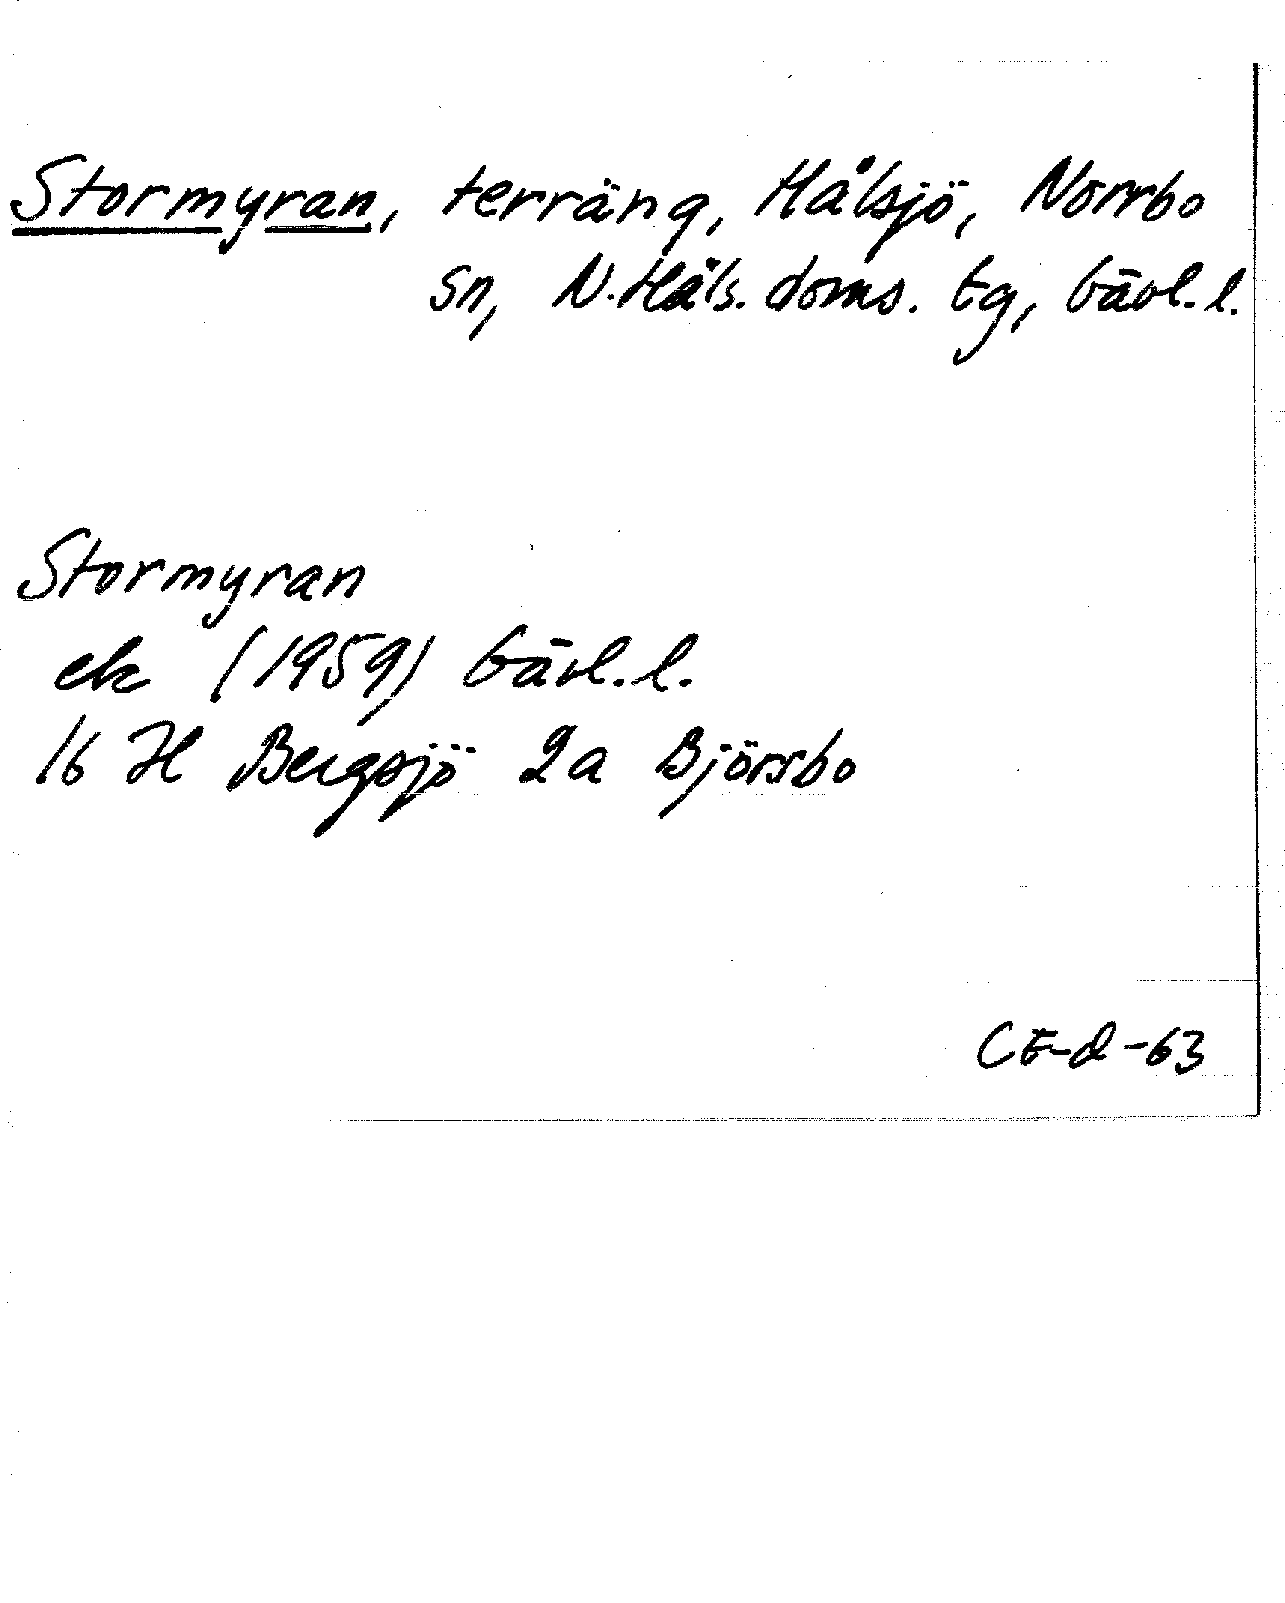 Stormyran, terräng, Hålsjö, Norrbo
sn, N. Häls. doms. tg, Gävl. l.
Stormyran
ek (1959) Gävl. l.
16 H Bergsjö 2a Björsbo
CE-d-63